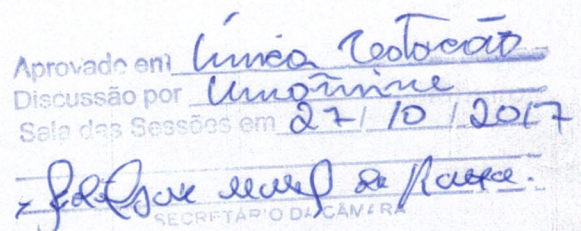 Aprovado em Única Votação
Discussão por Unânime
Sala das Sessões em 27 / 10 / 2017
SECRETÁRIO DA CÂMARA